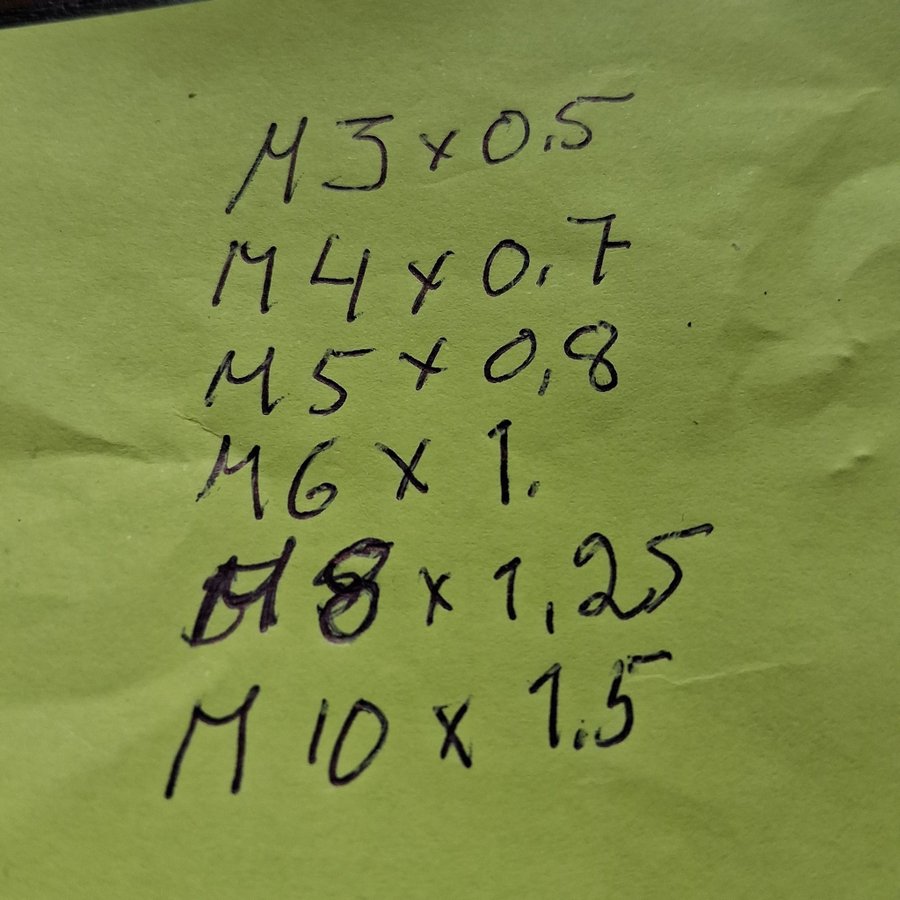 M3 x 0.5
M4 x 0,7
M5 x 0,8
M6 x 1.
M8 x 1,25
M10 x 1.5